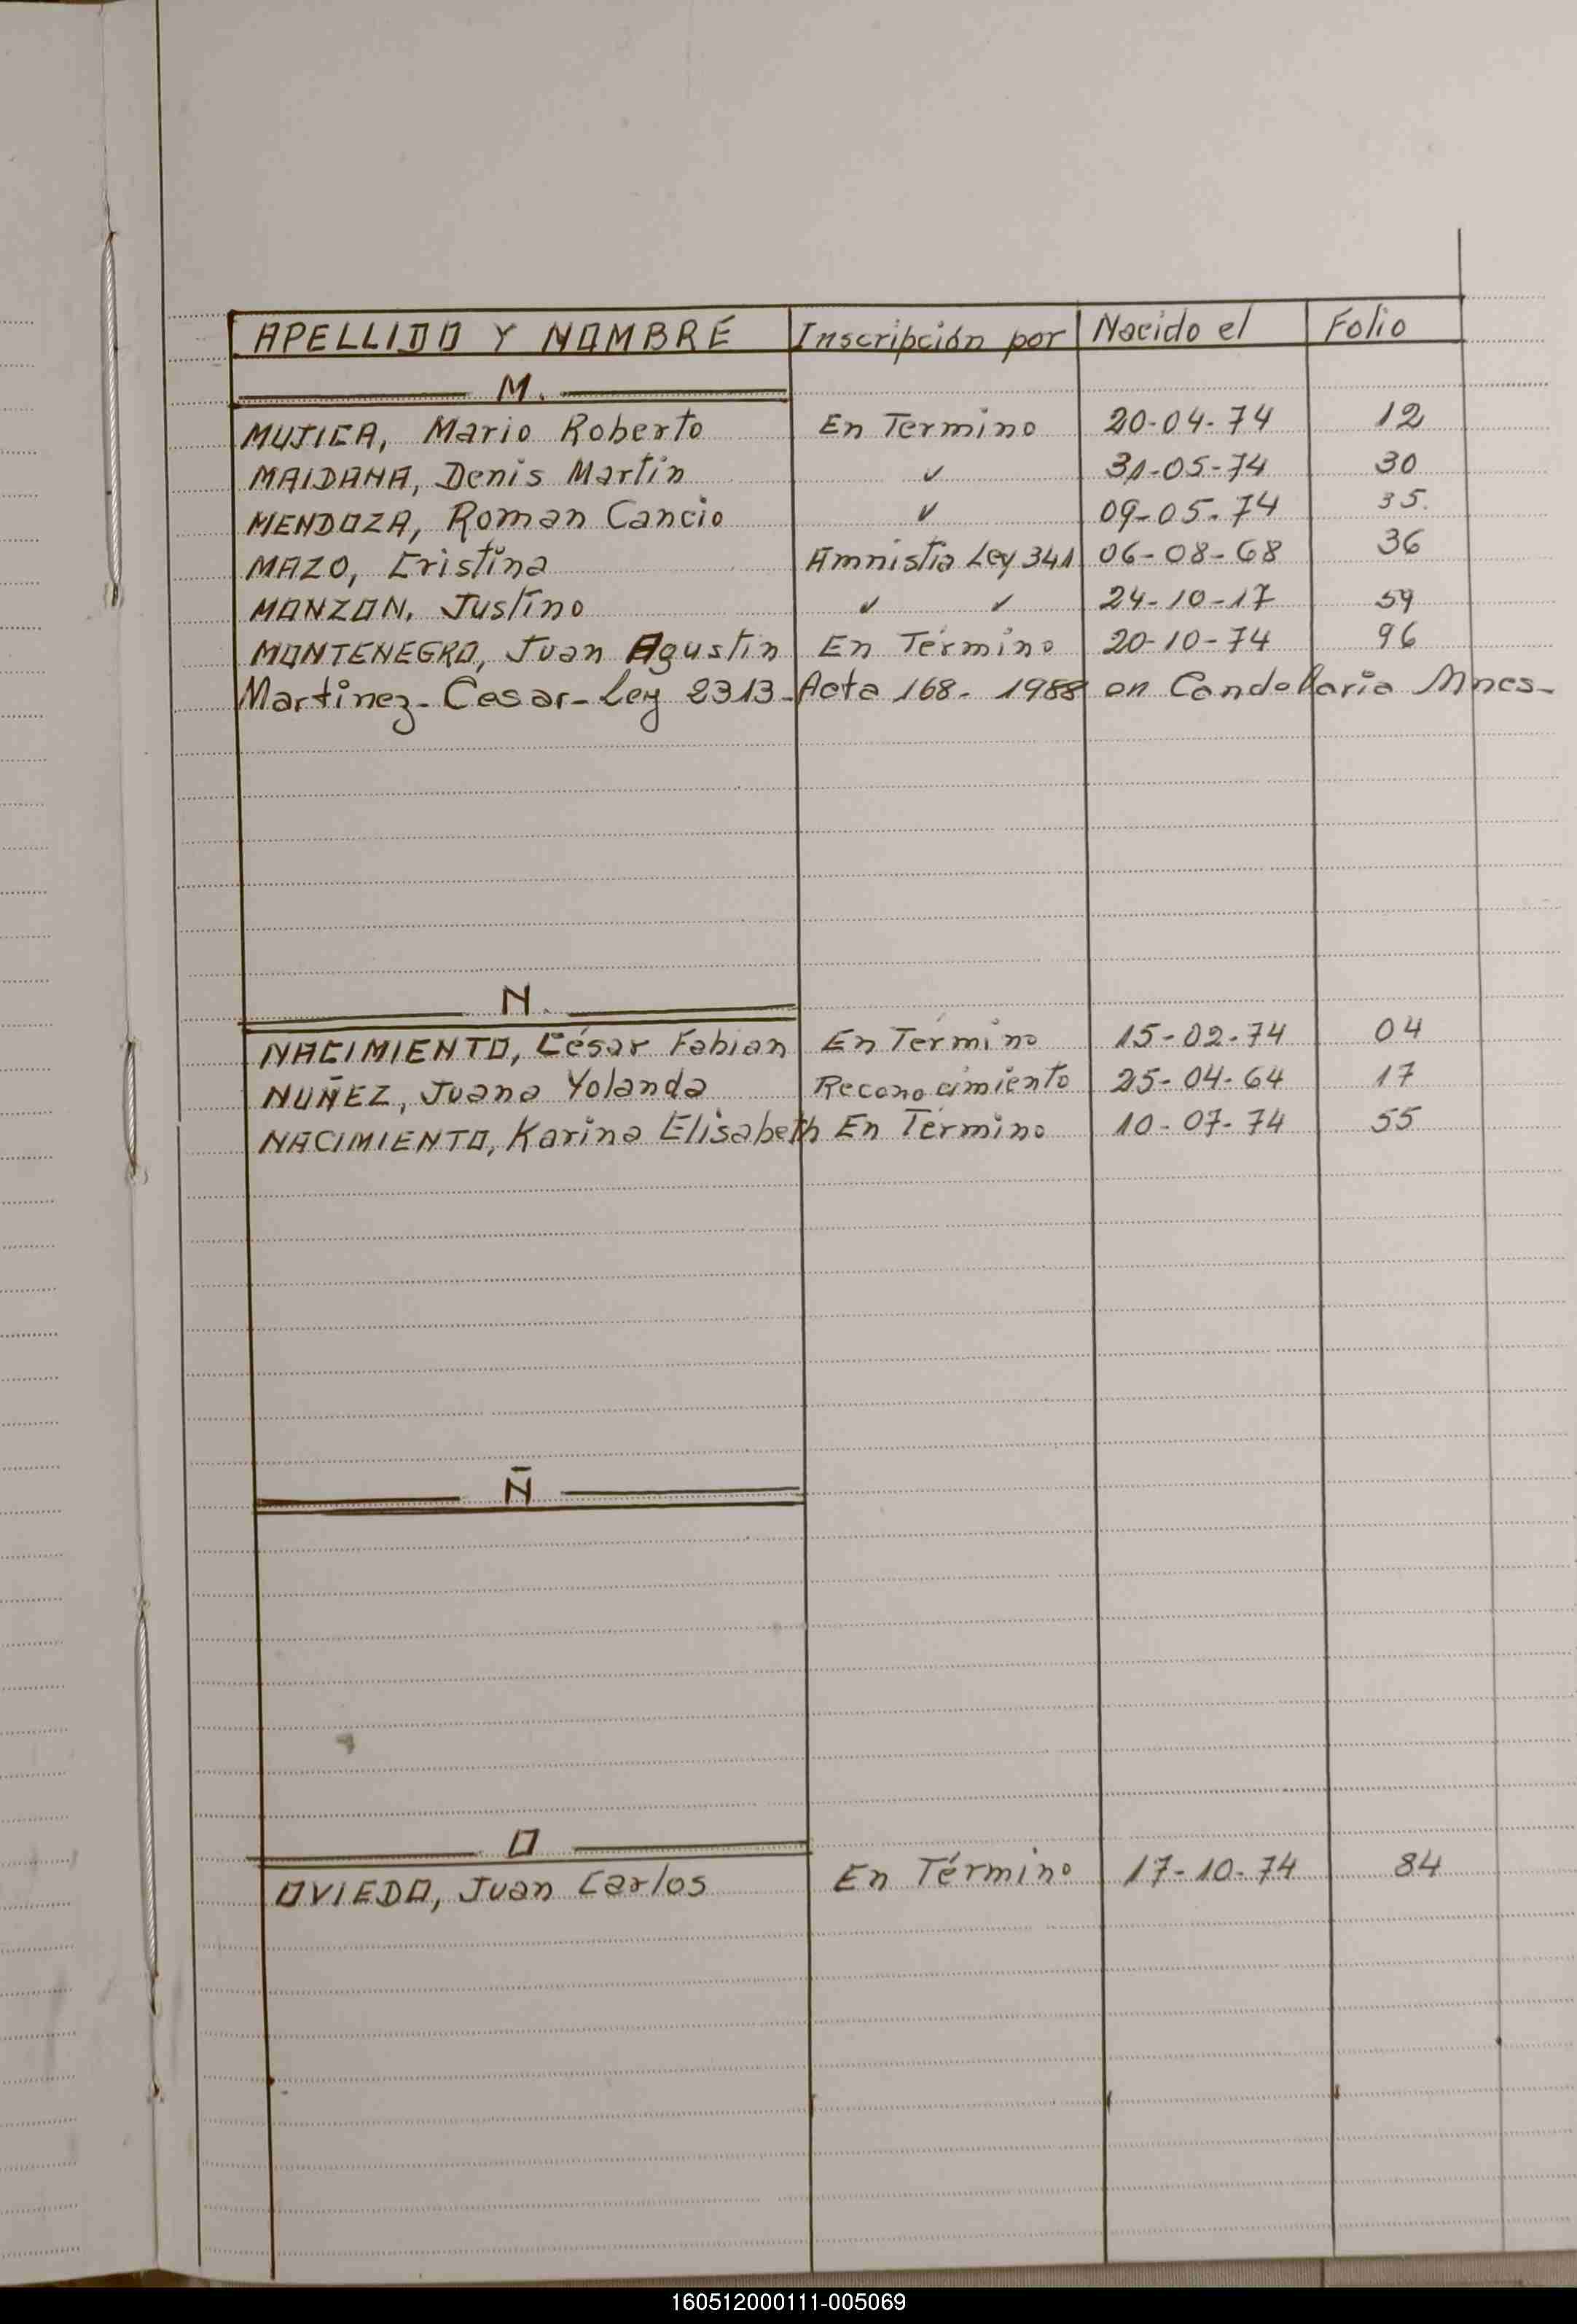 APELLIDO Y NOMBRE Inscripción por Nacido el Folio
M.
MUJICA, Mario Roberto En Termino 20-04-74 12
MAIDANA, Denis Martin ✓ 31-05-74 30
MENDOZA, Roman Cancio ✓ 09-05-74 35.
MAZO, Cristina Amnistia Ley 341 06-08-68 36
MONZON, Justino ✓ ✓ 24-10-17 59
MONTENEGRO, Juan Agustin En Término 20-10-74 96
Martinez- Cesar- Ley 2313- Acta 168- 1988 en Candelaria Mnes-
N.
NACIMIENTO, César Fabian En Término 15-02-74 04
NUÑEZ, Juana Yolanda Reconocimiento 25-04-64 17
NACIMIENTO, Karina Elisabeth En Término 10-07-74 55
Ñ
O
OVIEDO, Juan Carlos En Término 17-10-74 84
160512000111-005069